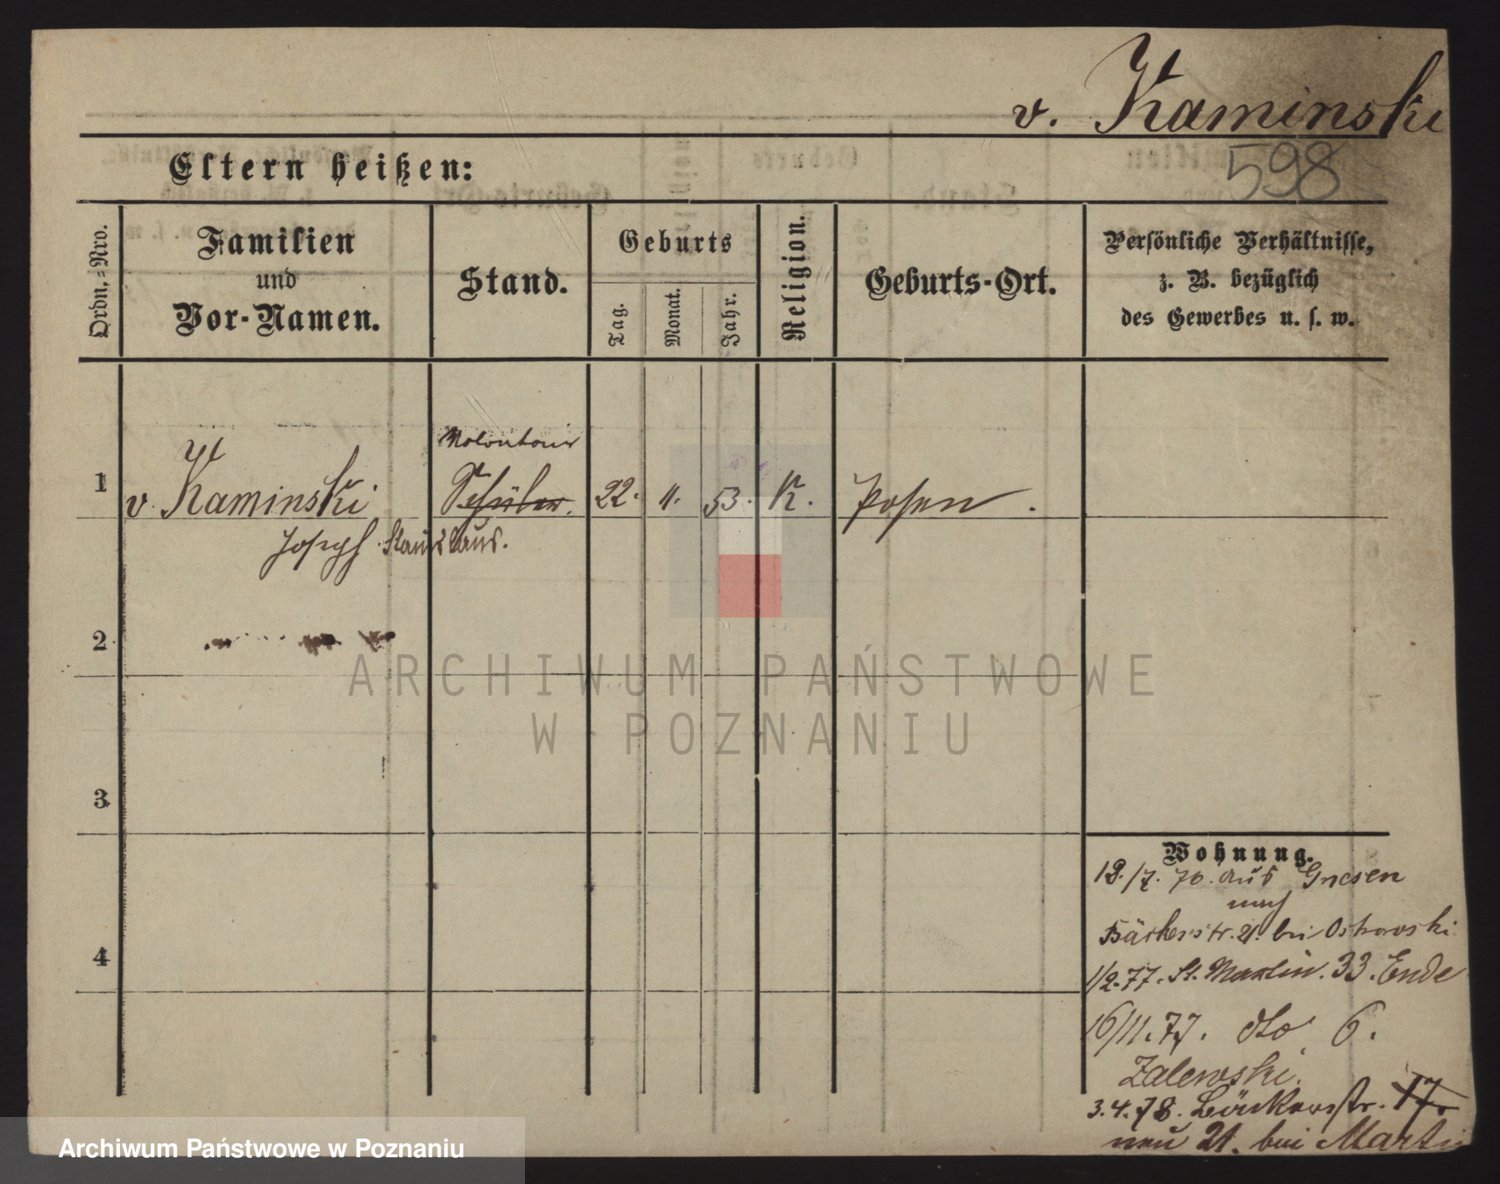 v. Kaminski
598
Eltern heißen:
Ordn.=Nro.
Familien
und
Vor-Namen.
Stand.
Geburts
Tag.
Monat.
Jahr.
Religion.
Geburts-Ort.
Persönliche Verhältnisse,
z. B. bezüglich
des Gewerbes u. s. w.
Volontair
1 v. Kaminski Schüler. 22. 11. 53. K. Posen.
Joseph Stanislaus.
2
3
4
Wohnung.
19./7. 76. aus Gnesen
nach
Bäckerstr. 21. bei Ostrowski
1/2. 77. St. Martin. 33. Ende
16/11. 77. dto 6.
Zalewski.
3. 4. 78. Bäckerstr. 17.
neu 21. bei Martin
ARCHIWUM PAŃSTWOWE
W POZNANIU
Archiwum Państwowe w Poznaniu